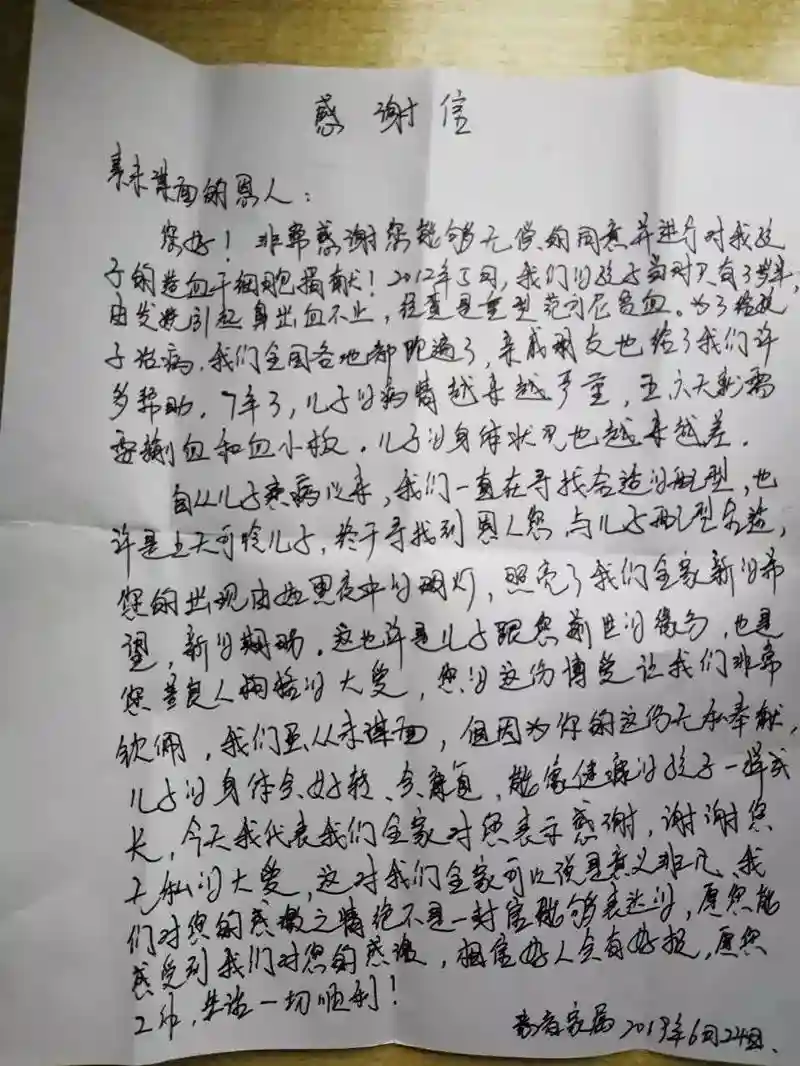 感谢信
素未谋面的恩人：
您好！非常感谢您能够无偿的同意并进行对我孩
子的造血干细胞捐献！2012年5月，我们的孩子当时只有3岁半，
由发烧引起鼻出血不止，经查是重型范可尼贫血。为了给孩
子治病，我们全国各地都跑遍了，亲戚朋友也给了我们许
多帮助，7年了，儿子的病情越来越严重，五六天就需
要输血和血小板，儿子的身体状况也越来越差．
自从儿子患病以来，我们一直在寻找合适的配型，也
许是上天可怜儿子，终于寻找到恩人您与儿子配型合适，
您的出现犹如黑夜中的明灯，照亮了我们全家新的希
望，新的期盼．这也许是儿子跟您前世的缘分，也是
您善良人拥有的大爱，您的这份博爱让我们非常
钦佩，我们虽从未谋面，但因为你的这份无私奉献，
儿子的身体会好转、会康复，能像健康的孩子一样成
长，今天我代表我们全家对您表示感谢，谢谢您
无私的大爱，这对我们全家可以说是意义非凡、我
们对您的感激之情绝不是一封信能够表达的，愿您能
感受到我们对您的感激，相信好人会有好报，愿您
工作，生活一切顺利！
患者家属 2019年6月24日．